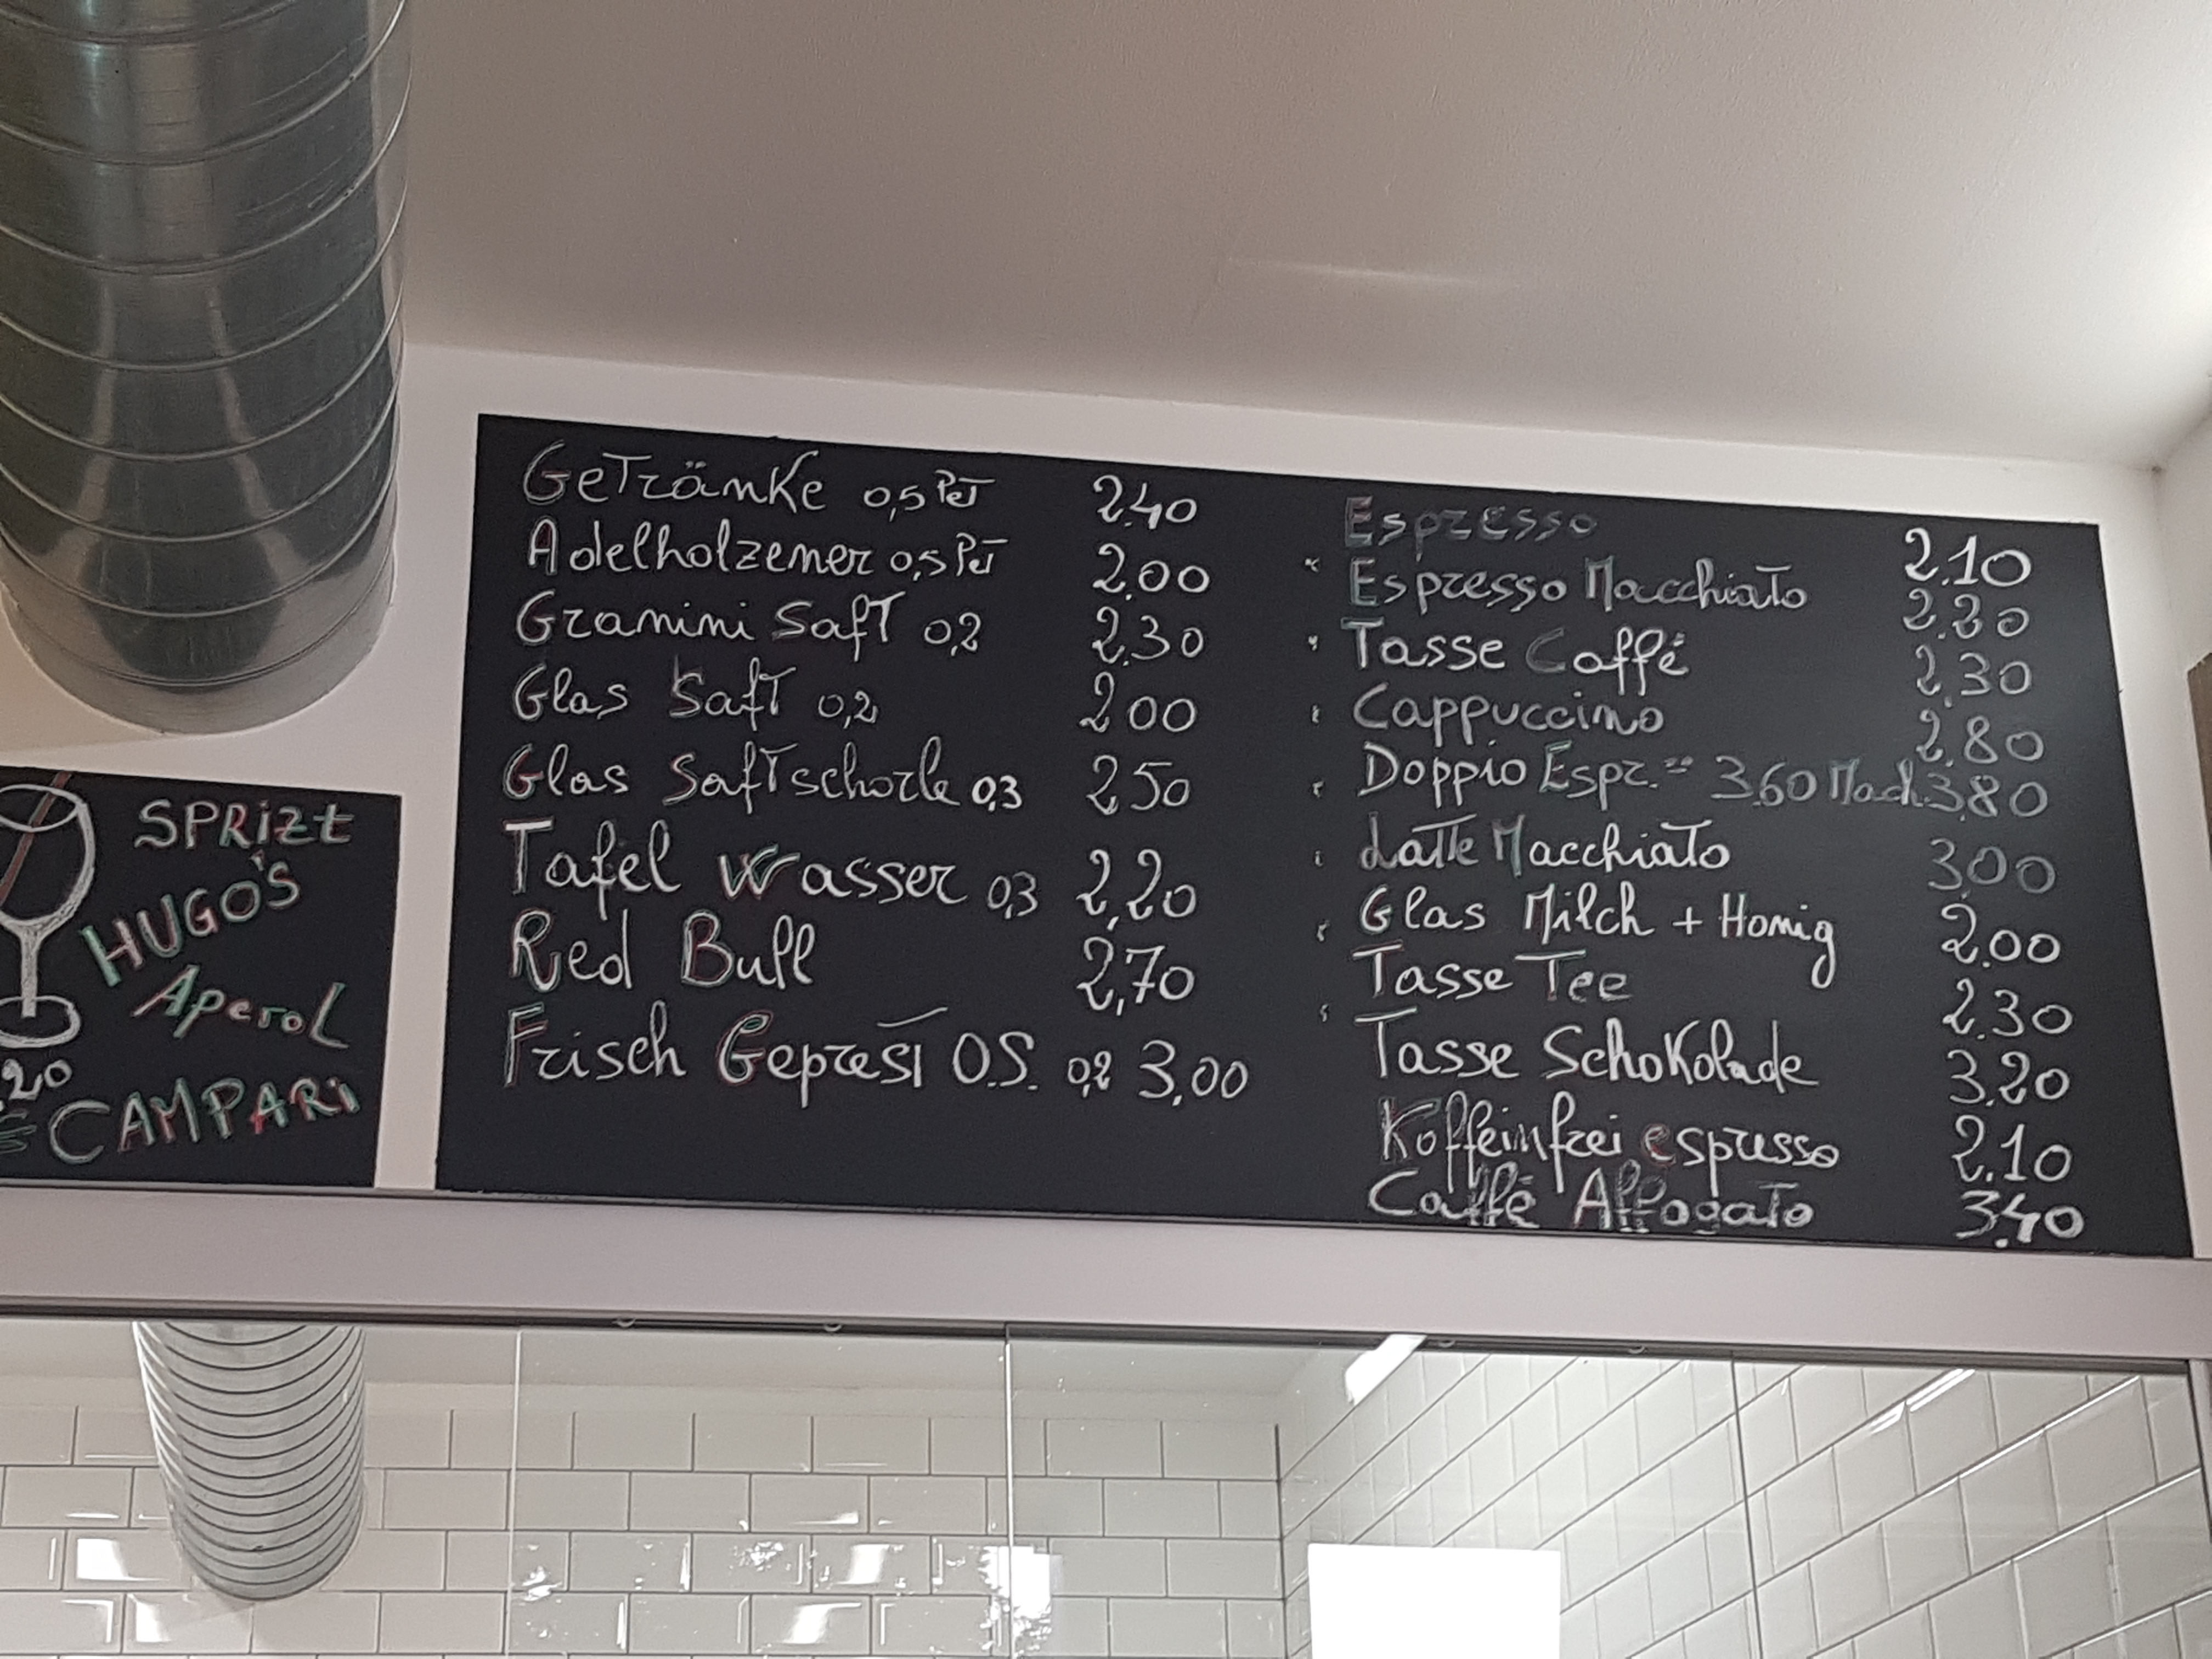 SPRizt
HUGO'S
Aperol
.20
CAMPARi
Getränke 0,5 Pet 2.40
Adelholzener 0,5 Pet 2.00
Granini Saft 0,2 2.30
Glas Saft 0,2 2 00
Glas Saftschorle 0,3 2 50
Tafel wasser 0,3 2,20
Red Bull 2,70
Frisch Gepresst O.S. 0,2 3,00
Espresso 2.10
Espresso Macchiato 2.20
Tasse Caffé 2.30
Cappuccino 2.80
Doppio Espr. = 3.60 Mach. 3.80
Latte Macchiato 3.00
Glas Milch + Honig 2.00
Tasse Tee 2.30
Tasse Schokolade 3.20
Koffeinfrei espresso 2.10
Caffé Affogato 3.40